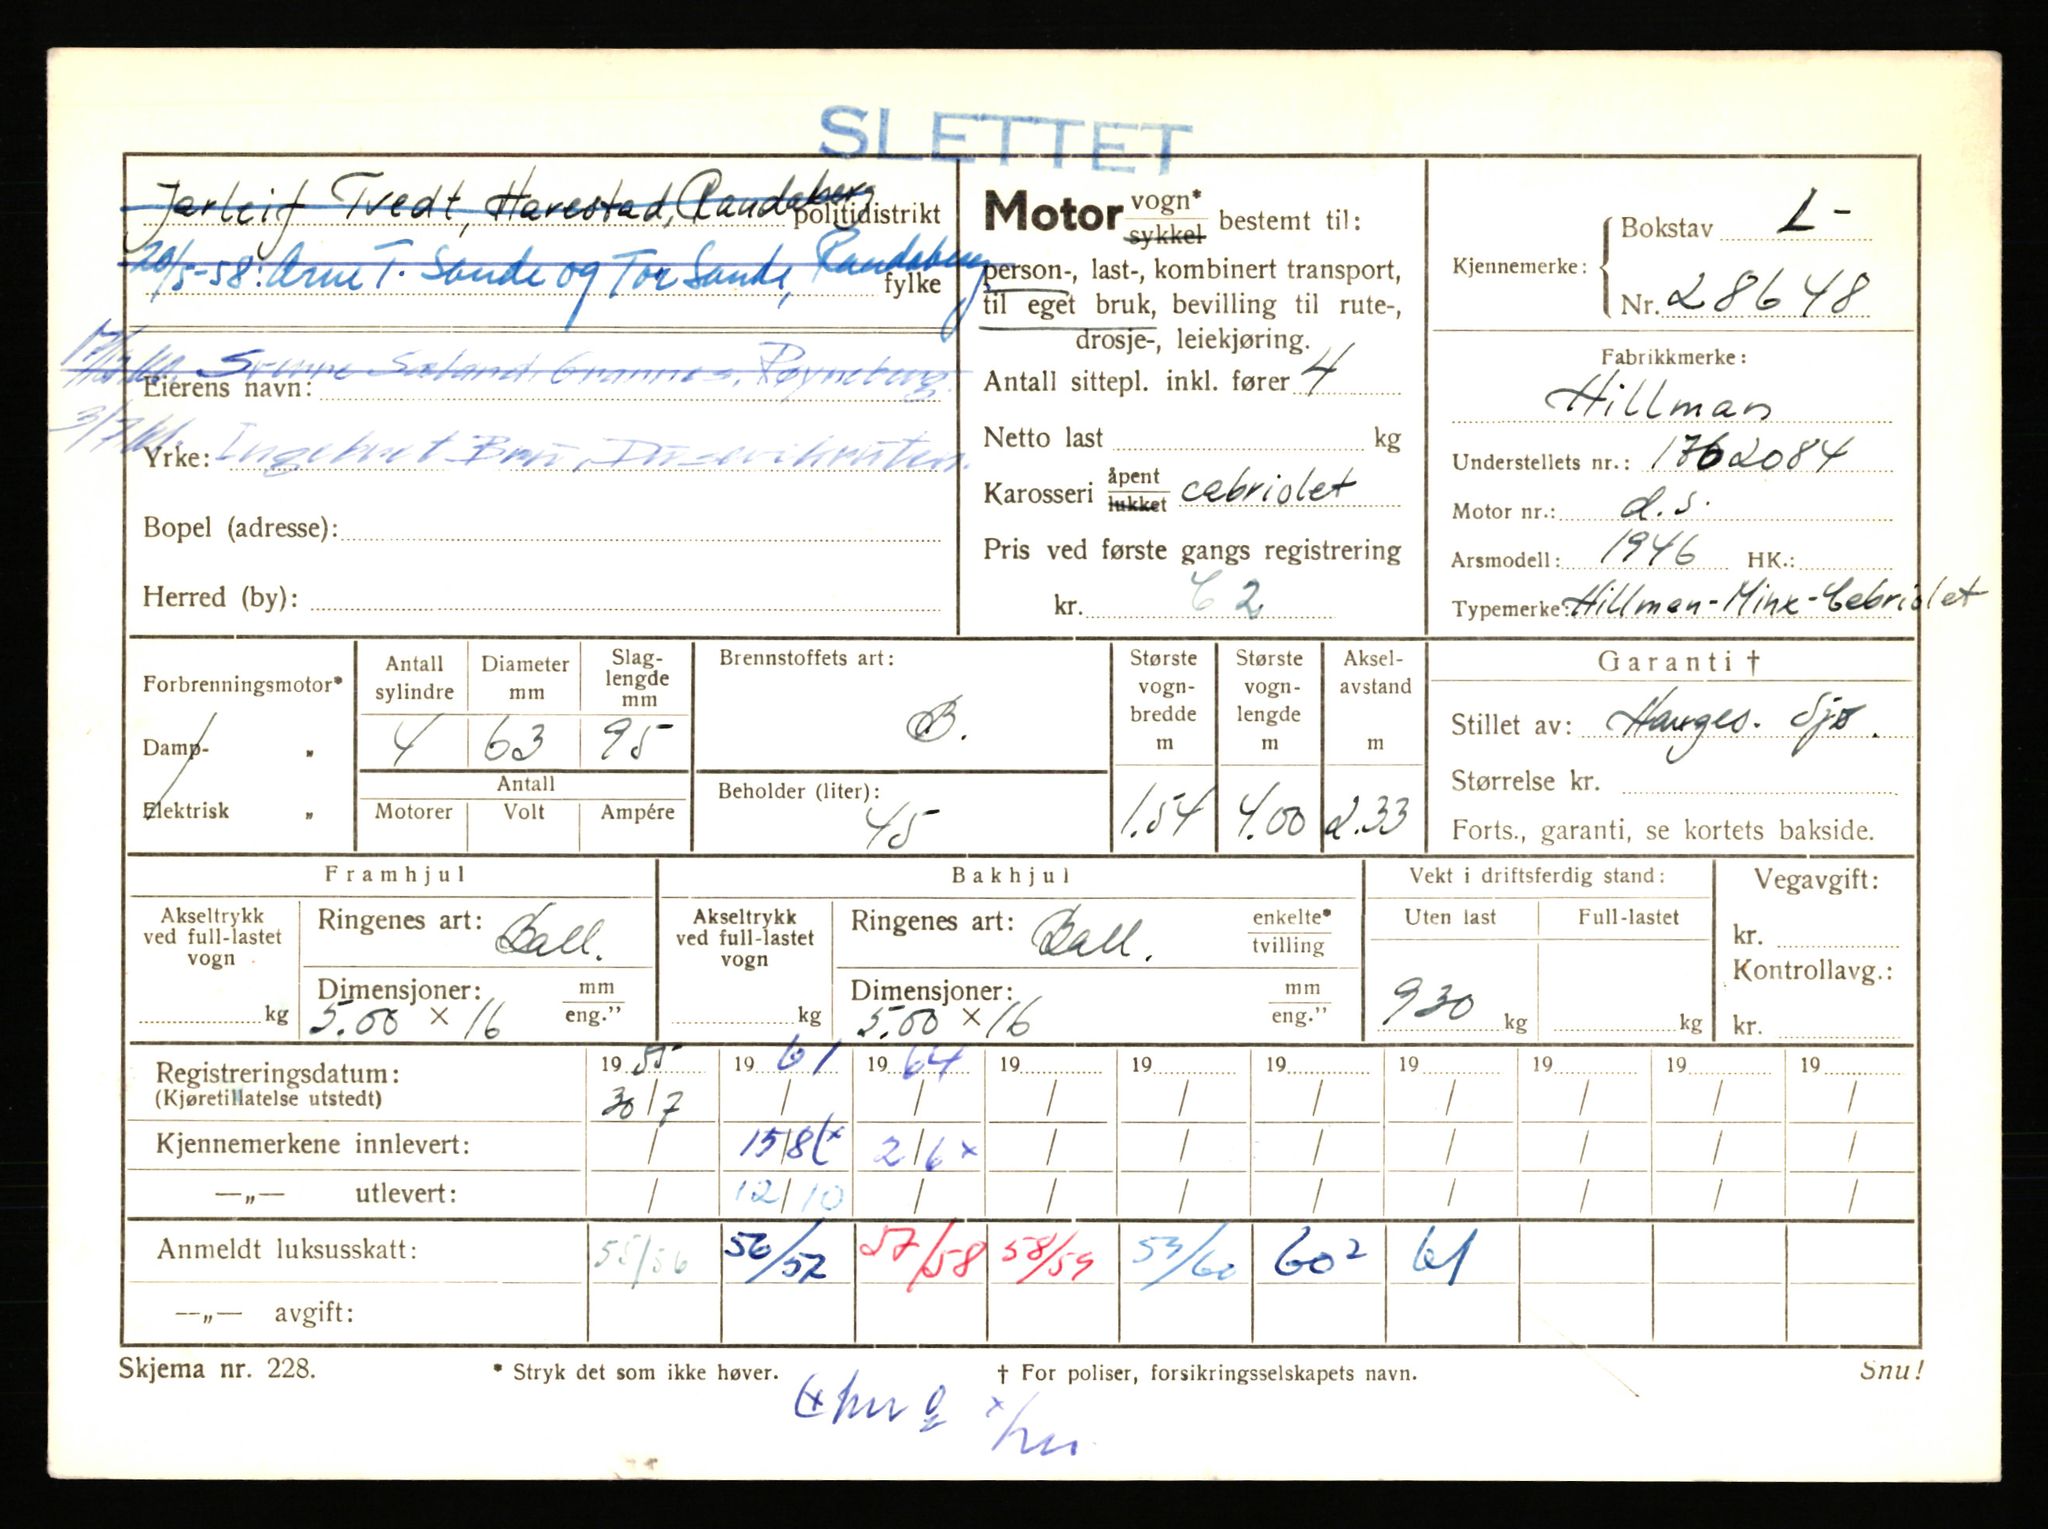 SLETTET
Jarleif Tvedt, Harestad, Randaberg politidistrikt
20/5-58: Arne T. Sande og Tor Sande, Randaberg fylke
Sæland Grannes, Røyneberg.
Eierens navn:
3/7 61. Yrke: Ingebret
Bopel (adresse):
Herred (by):
Motor vogn* sykkel bestemt til:
person-, last-, kombinert transport,
til eget bruk, bevilling til rute-,
drosje-, leiekjøring.
Antall sittepl. inkl. fører 4
Netto last kg
Karosseri åpent lukket cabriolet
Pris ved første gangs registrering
kr. C 2
Kjennemerke: Bokstav L-
Nr. 28648
Fabrikkmerke:
Hillman
Understellets nr.: 1762084
Motor nr.: d.s.
Arsmodell: 1946 HK.:
Typemerke: Hillman-Minx-Cabriolet
Forbrenningsmotor*
Damp- „
Elektrisk „
Antall sylindre 4
Diameter mm 63
Slaglengde mm 95
Antall
Motorer Volt Ampére
Brennstoffets art:
B.
Beholder (liter):
45
Største vogn-bredde m 1.54
Største vogn-lengde m 4.00
Aksel-avstand m 2.33
Garanti †
Stillet av: Hauges. Sjø.
Størrelse kr.
Forts., garanti, se kortets bakside.
Framhjul
Akseltrykk ved full-lastet vogn
kg
Ringenes art: Ball.
Dimensjoner: mm eng.”
5.00 × 16
Bakhjul
Akseltrykk ved full-lastet vogn
kg
Ringenes art: Ball. enkelte* tvilling
Dimensjoner: mm eng.”
5.00 × 16
Vekt i driftsferdig stand:
Uten last Full-lastet
930 kg kg
Vegavgift:
kr.
Kontrollavg.:
kr.
Registreringsdatum: 1955 1961 1964 19 19 19 19 19 19 19
(Kjøretillatelse utstedt) 30/7 / / / / / / / / /
Kjennemerkene innlevert: / 15/8 x 2/6 x / / / / / / /
—„— utlevert: / 12/10 / / / / / / / /
Anmeldt luksusskatt: 55/56 56/57 57/58 58/59 59/60 60² 61
—„— avgift:
Skjema nr. 228. * Stryk det som ikke høver. † For poliser, forsikringsselskapets navn. Snu!